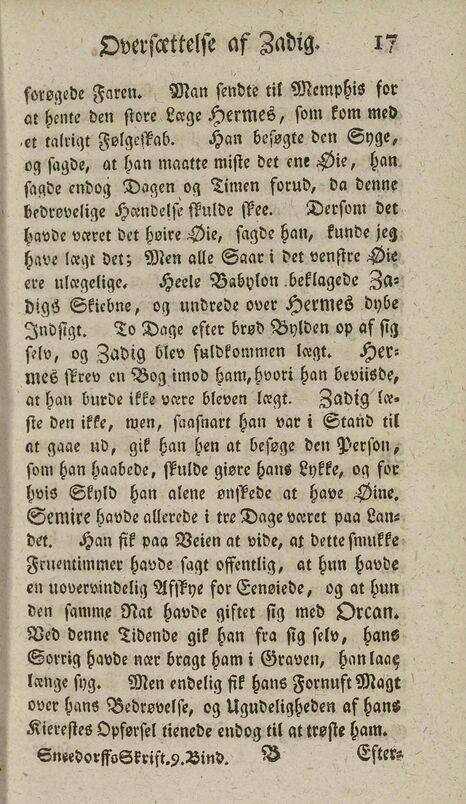 Oversættelse af Zadig. 17
forøgede Faren. Man sendte til Memphis for
at hente den store Læge Hermes, som kom med
et talrigt Følgeskab. Han besøgte den Syge,
og sagde, at han maatte miste det ene Øie, han
sagde endog Dagen og Timen forud, da denne
bedrøvelige Hændelse skulde skee. Dersom det
havde været det høire Øie, sagde han, kunde jeg
have lægt det; Men alle Saar i det venstre Øie
ere ulægelige. Heele Babylon beklagede Za-
digs Skiebne, og undrede over Hermes dybe
Indsigt. To Dage efter brød Bylden op af sig
selv, og Zadig blev fuldkommen lægt. Her-
mes skrev en Bog imod ham, hvori han beviisde,
at han burde ikke være bleven lægt. Zadig læ-
ste den ikke, men, saasnart han var i Stand til
at gaae ud, gik han hen at besøge den Person,
som han haabede, skulde giøre hans Lykke, og for
hvis Skyld han alene ønskede at have Øine.
Semire havde allerede i tre Dage været paa Lan-
det. Han fik paa Veien at vide, at dette smukke
Fruentimmer havde sagt offentlig, at hun havde
en uovervindelig Afskye for Eenøiede, og at hun
den samme Nat havde giftet sig med Orcan.
Ved denne Tidende gik han fra sig selv, hans
Sorrig havde nær bragt ham i Graven, han laae
længe syg. Men endelig fik hans Fornuft Magt
over hans Bedrøvelse, og Ugudeligheden af hans
Kierestes Opførsel tienede endog til at trøste ham.
Sneedorffs Skrift. 9. Bind. B Efter-